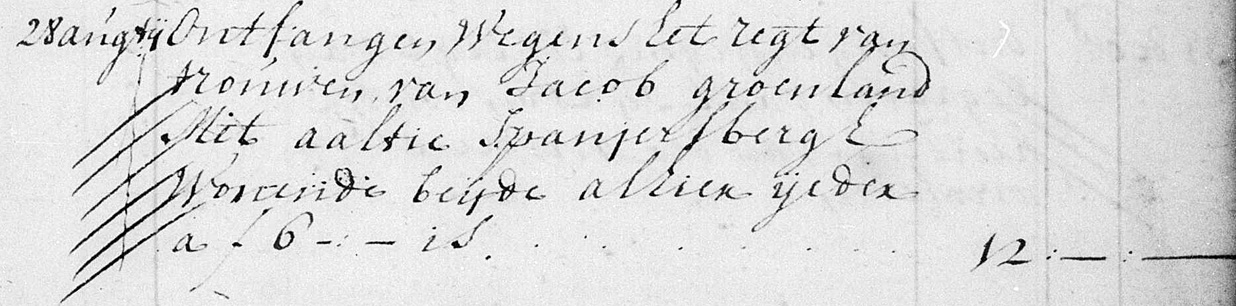 28 augsty Ontfangen Wegens het regt van
trouwen van Jacob groenland
Met aaltie Spanjersbergh
Wonende beyde alhier yeder
a f 6 -:- is . . . . . . 12:—:—